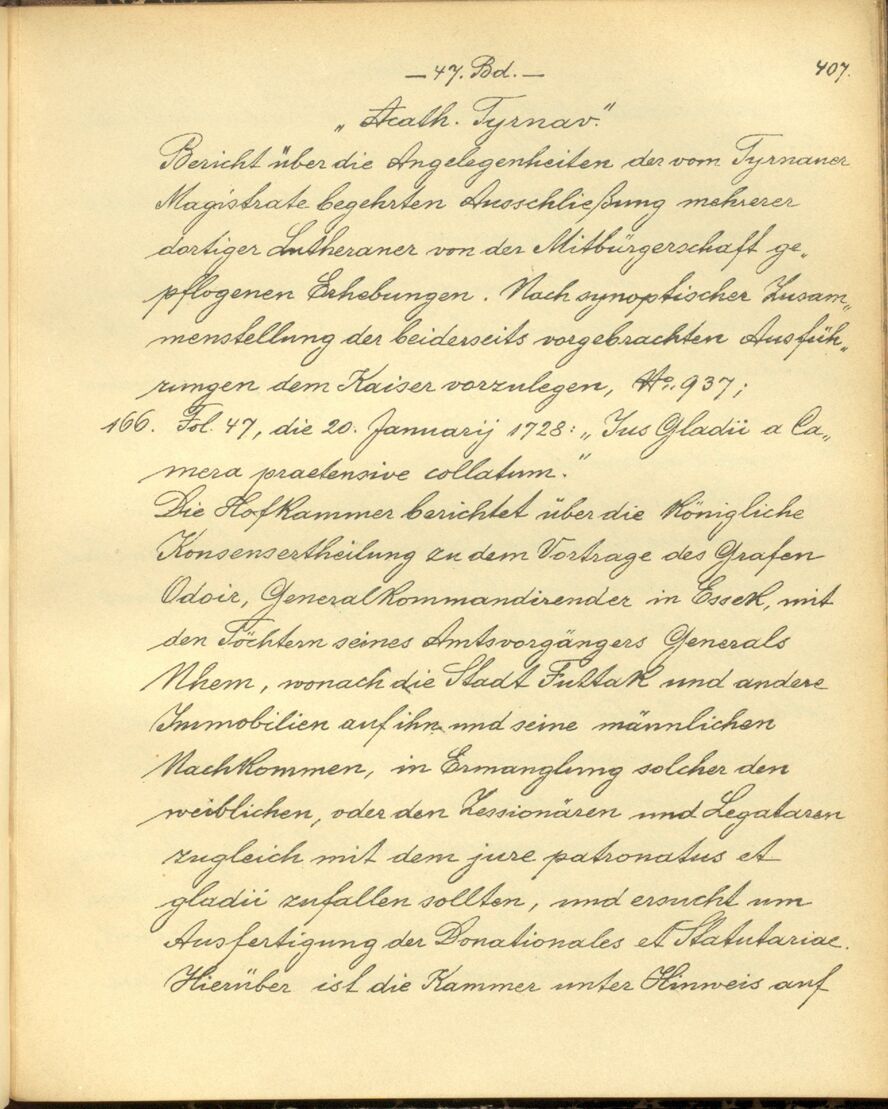 — 47. Bd. —
407.
„Acath. Tyrnav."
Bericht über die Angelegenheiten der vom Tyrnauer
Magistrate begehrten Ausschließung mehrerer
dortiger Lutheraner von der Mitbürgerschaft ge„
pflogenen Erhebungen. Nach synoptischer Zusam„
menstellung der beiderseits vorgebrachten Ausfüh„
rungen dem Kaiser vorzulegen, No. 937;
166. Fol. 47, die 20. Januarij 1728: „Jus Gladii a Ca„
mera praetensive collatum."
Die Hofkammer berichtet über die königliche
Konsensertheilung zu dem Vortrage des Grafen
Odoir, Generalkommandirender in Essek, mit
den Töchtern seines Amtsvorgängers Generals
Nhem, wonach die Stadt Futtak und andere
Immobilien auf ihn und seine männlichen
Nachkommen, in Ermanglung solcher den
weiblichen, oder den Zessionären und Legataren
zugleich mit dem jure patronatus et
gladii zufallen sollten, und ersucht um
Ausfertigung der Donationales et Statutariae.
Hierüber ist die Kammer unter Hinweis auf